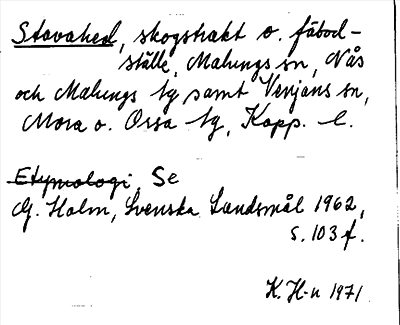 Stavahed, skogstrakt o. fäbod-
ställe, Malungs sn, Nås
och Malungs tg samt Venjans sn,
Mora o. Orsa tg, Kopp. l.
Etymologi, Se
G. Holm, Svenska Landsmål 1962,
s. 103 f.
K. H-n 1971